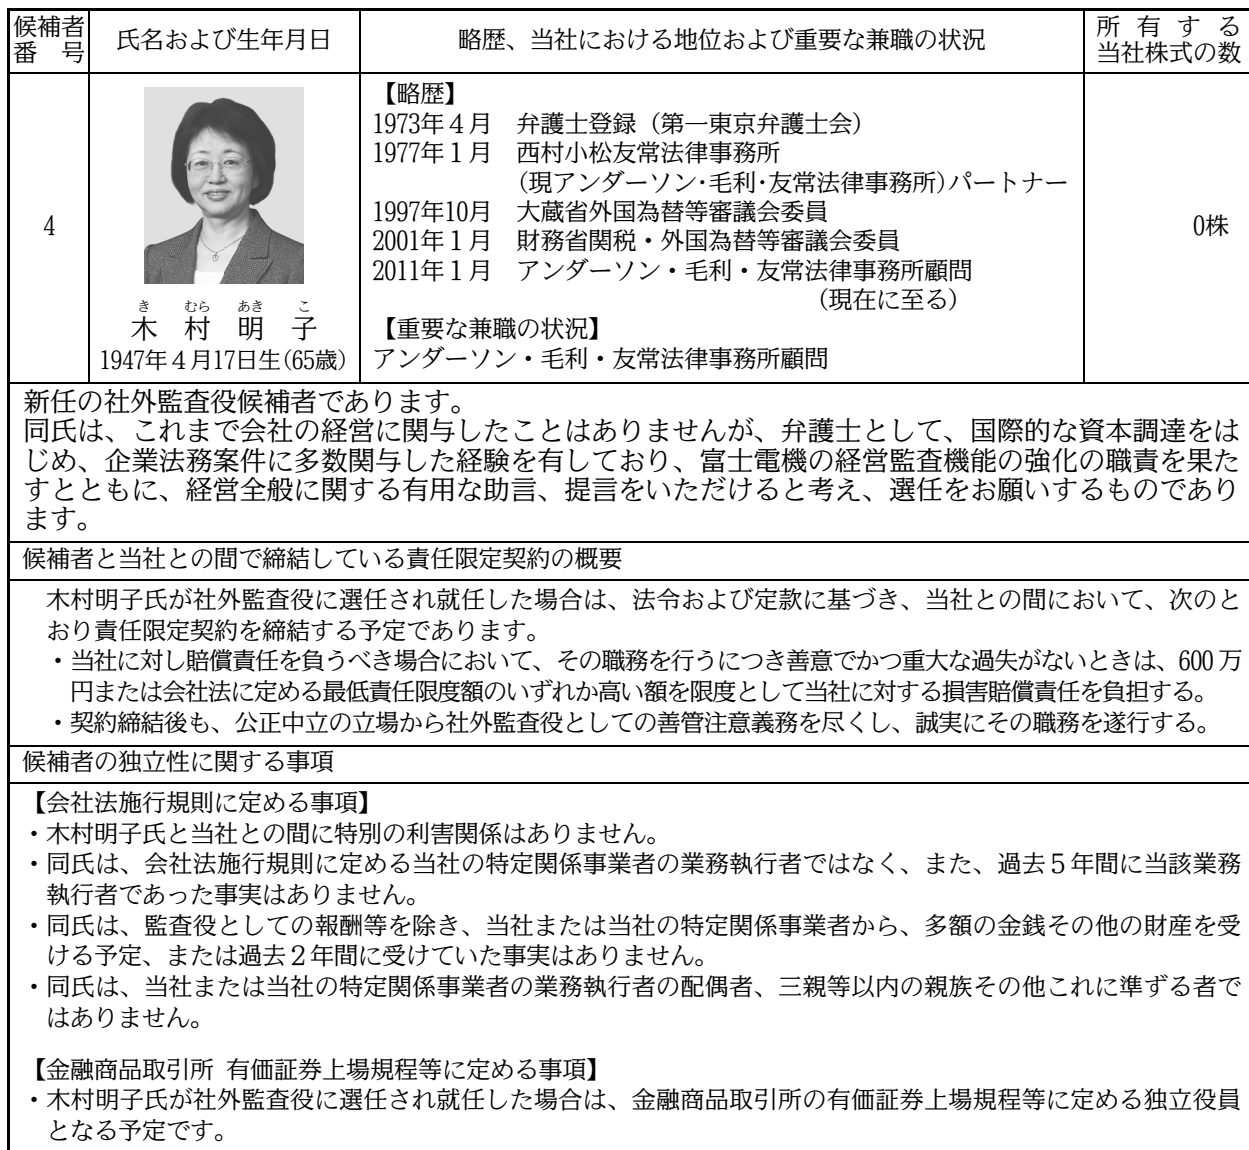 候補者
番　号
氏名および生年月日
略歴、当社における地位および重要な兼職の状況
所有する
当社株式の数
4
き　むら　あき　こ
木　村　明　子
1947年４月17日生(65歳)
【略歴】
1973年４月　弁護士登録（第一東京弁護士会）
1977年１月　西村小松友常法律事務所
（現アンダーソン･毛利･友常法律事務所）パートナー
1997年10月　大蔵省外国為替等審議会委員
2001年１月　財務省関税・外国為替等審議会委員
2011年１月　アンダーソン・毛利・友常法律事務所顧問
（現在に至る）
【重要な兼職の状況】
アンダーソン・毛利・友常法律事務所顧問
0株
新任の社外監査役候補者であります。
同氏は、これまで会社の経営に関与したことはありませんが、弁護士として、国際的な資本調達をは
じめ、企業法務案件に多数関与した経験を有しており、富士電機の経営監査機能の強化の職責を果た
すとともに、経営全般に関する有用な助言、提言をいただけると考え、選任をお願いするものであり
ます。
候補者と当社との間で締結している責任限定契約の概要
木村明子氏が社外監査役に選任され就任した場合は、法令および定款に基づき、当社との間において、次のと
おり責任限定契約を締結する予定であります。
・当社に対し賠償責任を負うべき場合において、その職務を行うにつき善意でかつ重大な過失がないときは、600万
円または会社法に定める最低責任限度額のいずれか高い額を限度として当社に対する損害賠償責任を負担する。
・契約締結後も、公正中立の立場から社外監査役としての善管注意義務を尽くし、誠実にその職務を遂行する。
候補者の独立性に関する事項
【会社法施行規則に定める事項】
・木村明子氏と当社との間に特別の利害関係はありません。
・同氏は、会社法施行規則に定める当社の特定関係事業者の業務執行者ではなく、また、過去５年間に当該業務
執行者であった事実はありません。
・同氏は、監査役としての報酬等を除き、当社または当社の特定関係事業者から、多額の金銭その他の財産を受
ける予定、または過去２年間に受けていた事実はありません。
・同氏は、当社または当社の特定関係事業者の業務執行者の配偶者、三親等以内の親族その他これに準ずる者で
はありません。
【金融商品取引所 有価証券上場規程等に定める事項】
・木村明子氏が社外監査役に選任され就任した場合は、金融商品取引所の有価証券上場規程等に定める独立役員
となる予定です。